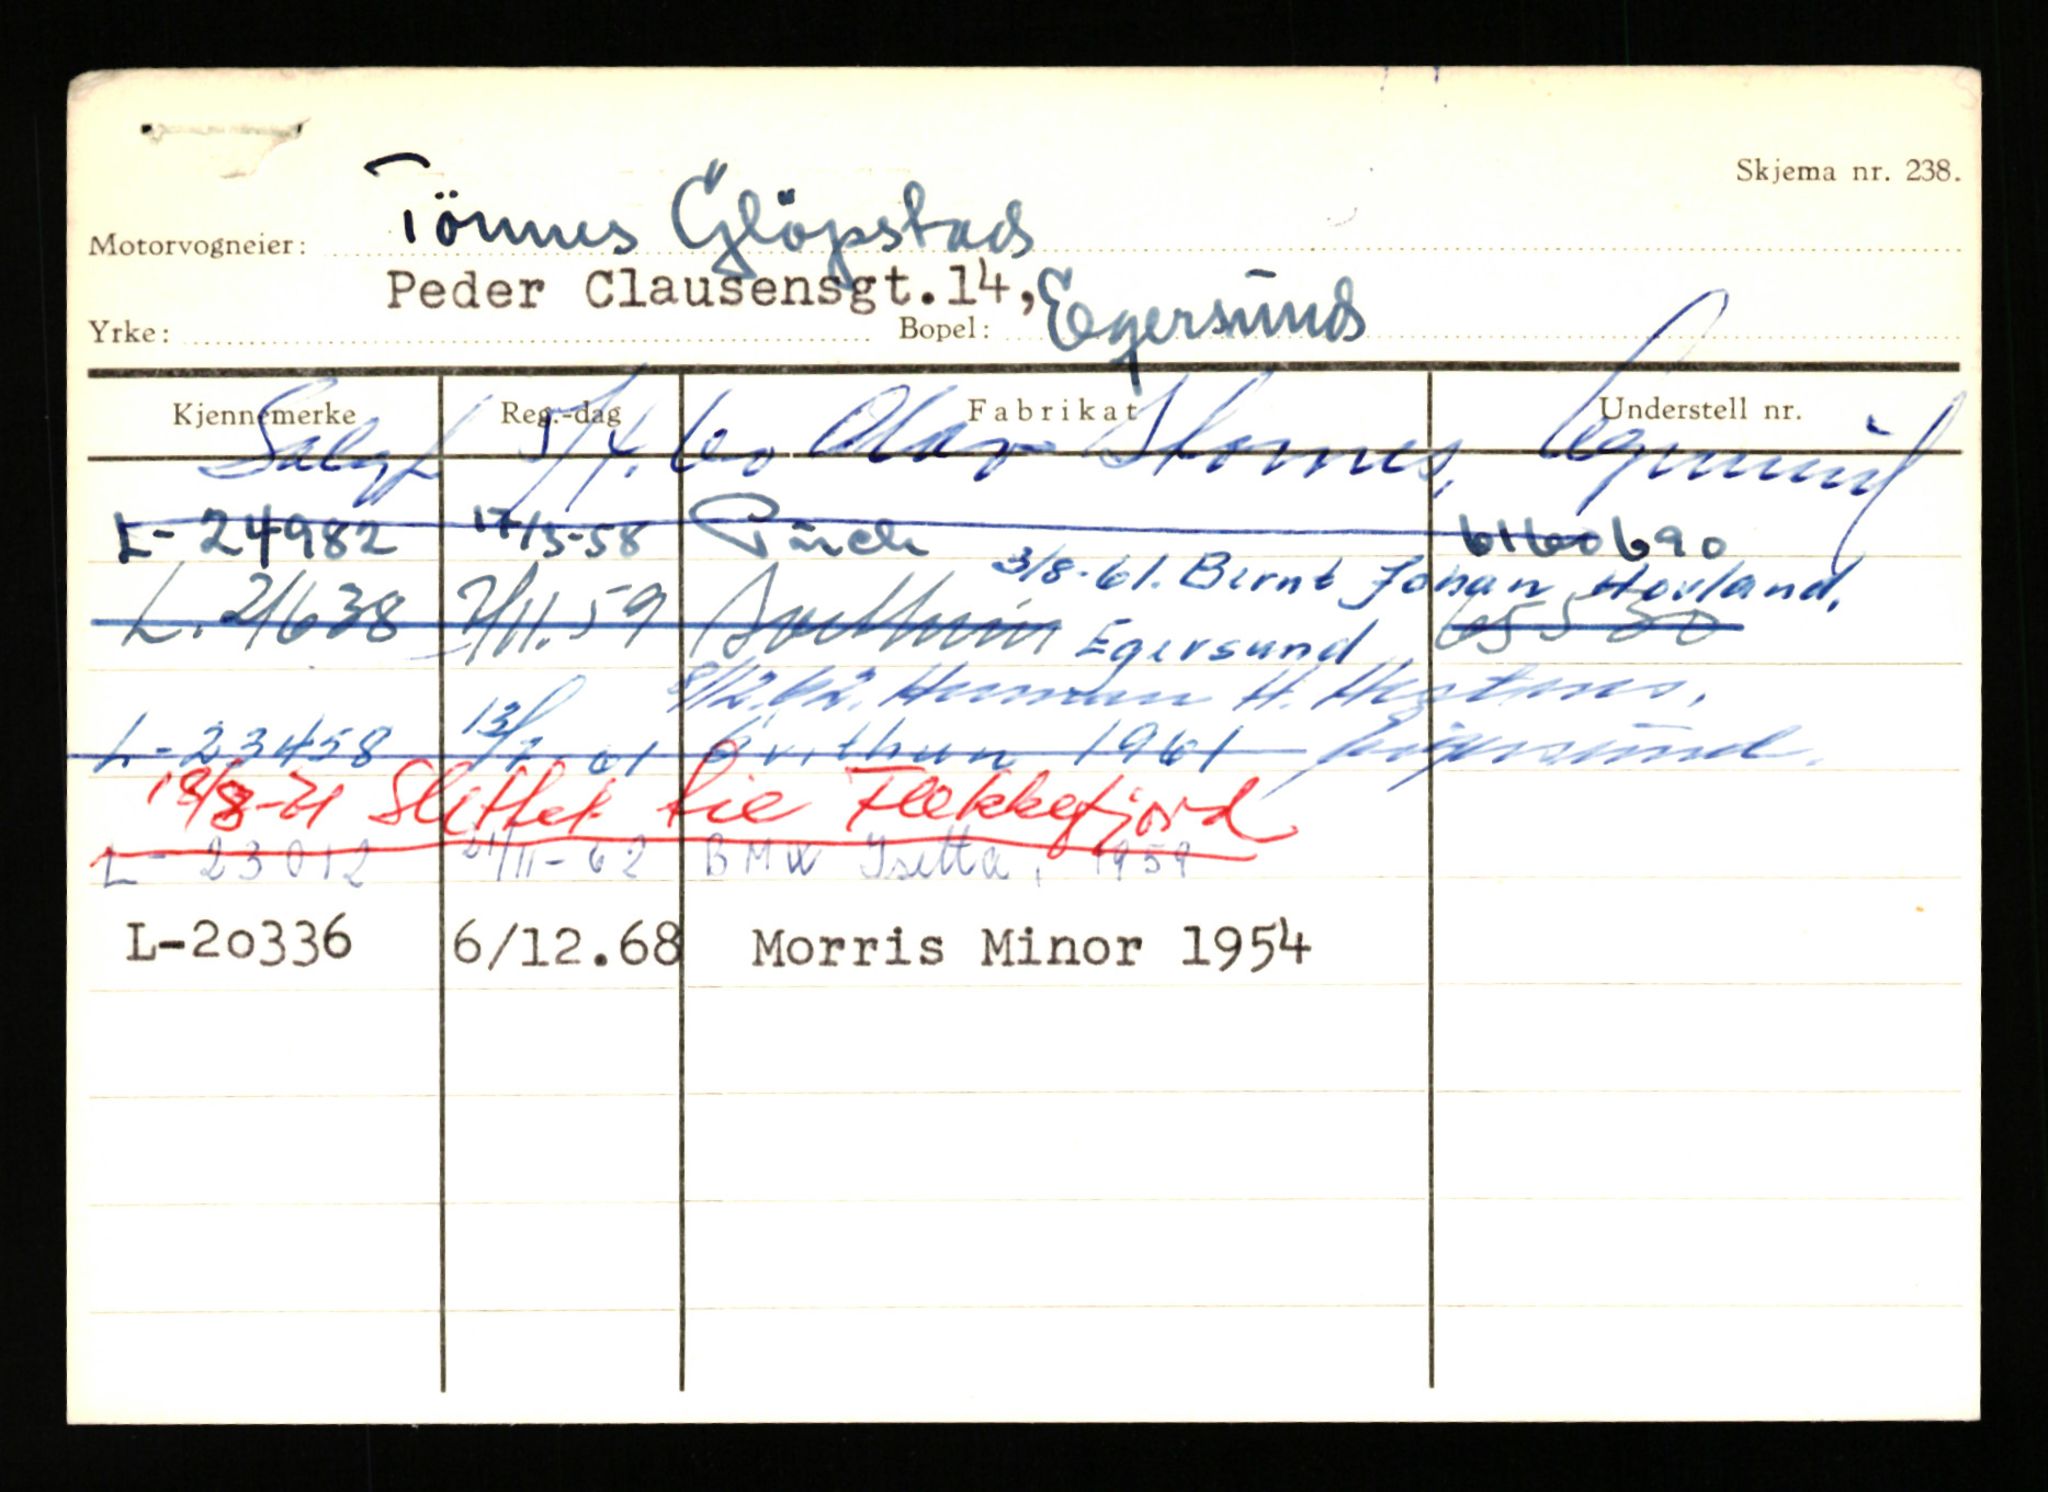 Skjema nr. 238.
Motorvogneier: Tönnes Glöpstad
Peder Clausensgt.14, Egersund
Yrke: Bopel:
Kjennemerke Reg.-dag Fabrikat Understell nr.
Solgt 5/4.60 Olav Stornes, Egersund
L-24982 17/3-58 Puch 6160690
3/8-61. Bernt Johan Hovland,
L.21638 7/11.59 65530
Egersund
8/12.62. Herman H.
L-23458 13/7 61 1961 Egersund.
18/8-71 Slettet Flekkefjord
L-23012 21/11-62 BMW Isetta, 1959
L-20336 6/12.68 Morris Minor 1954